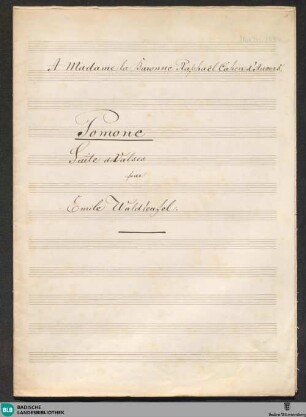 A Madame la Baronne Raphaël Cahen d'Anvers.
Pomone
Suite de Valses
par
Emile Waldteufel.
BLB BADISCHE
LANDESBIBLIOTHEK